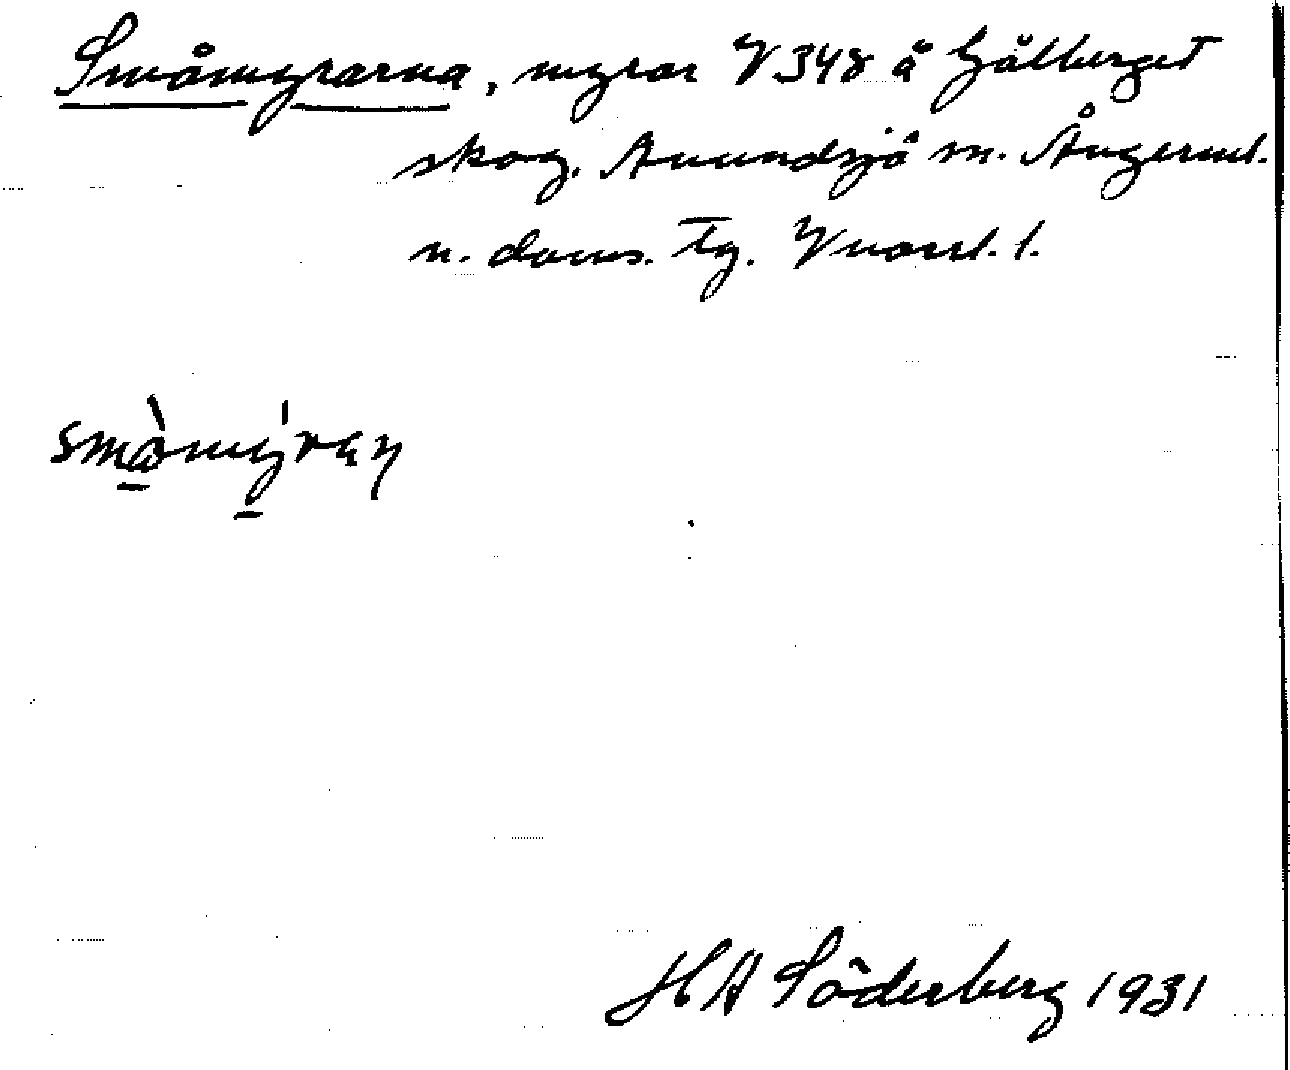 Småmyrarna, myrar V 348 å Gålberget
skog. Anundsjö sn. Ångerml.
n. doms. Tg. Vnorrl. l.
småmýraɳ
H A Söderberg 1931